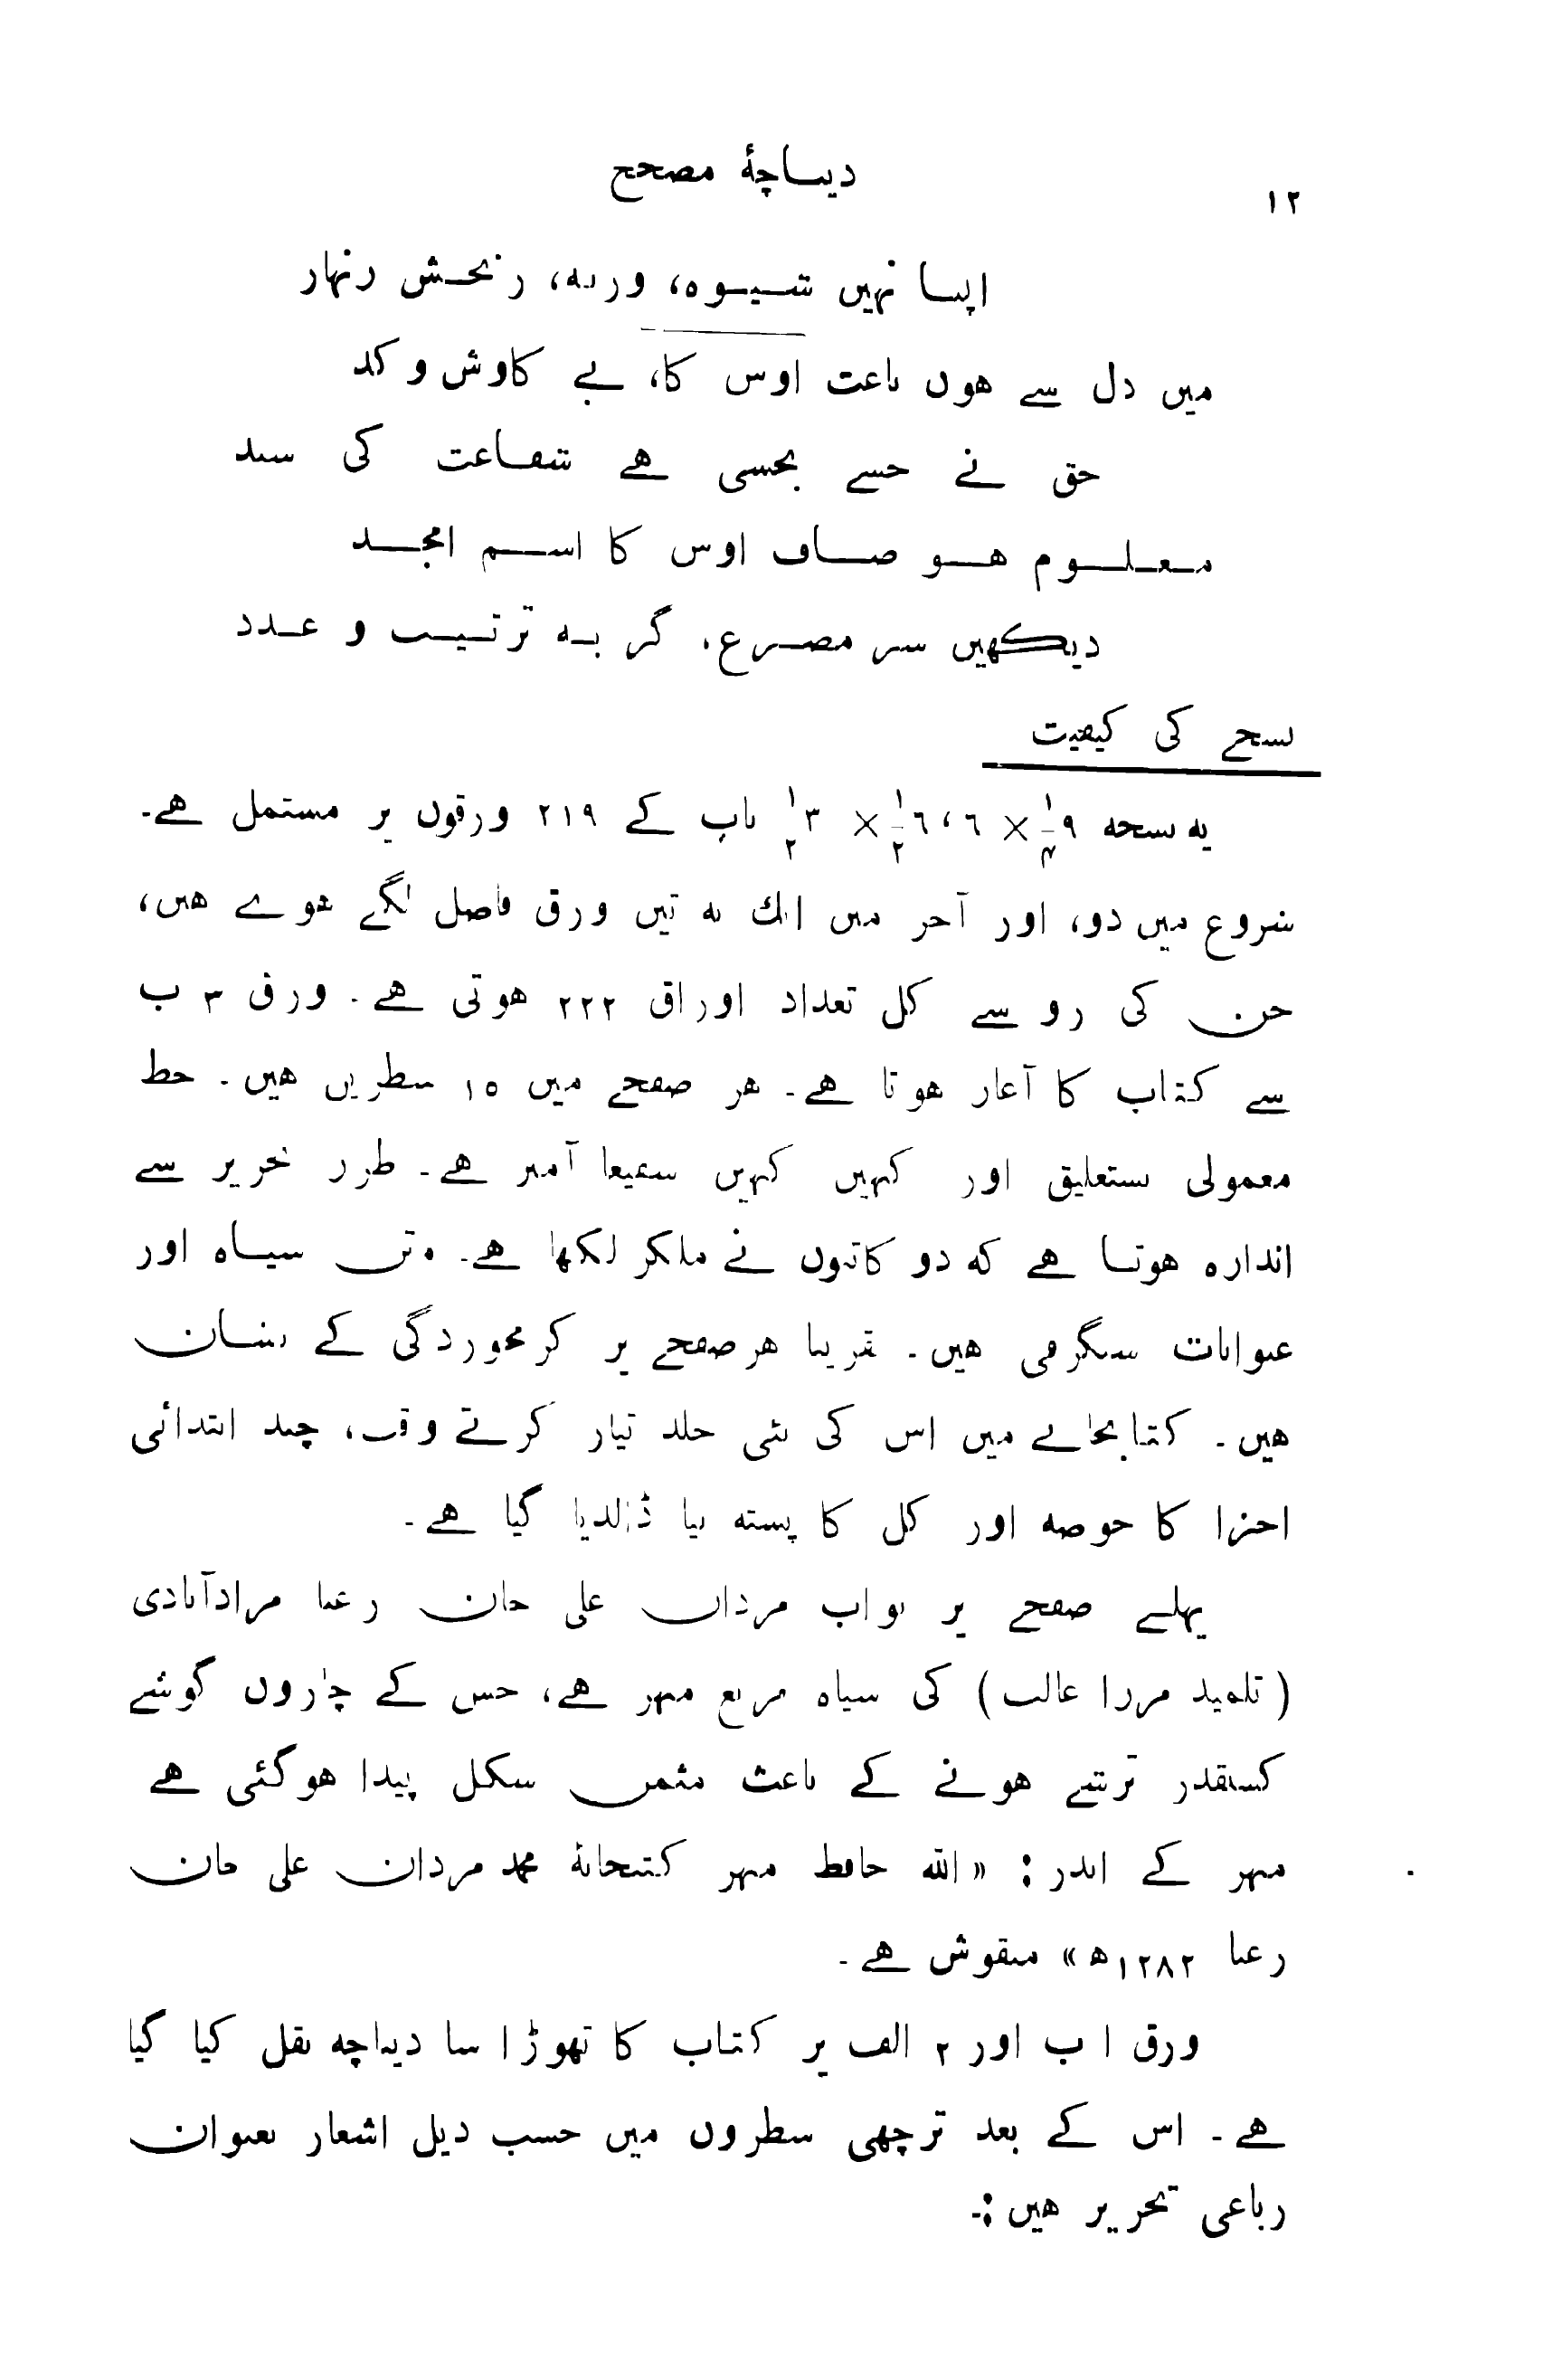 دیباچۂ مصحح
۱۲
ایسا نہیں شیوہ، ورنہ، رنجش زنہار
میں دل سے ہوں باعث اوس کا، بے کاوش و کد
حق نے جسے بخشی ہے شفاعت کی سند
معلوم ہو صاف اوس کا اسم امجد
دیکھیں سر مصرع، گر بہ ترتیب و عدد
نسخے کی کیفیت
یہ نسخہ ۹ ۱/۴ × ۶، ۶ ۱/۲ × ۳ ۱/۲ ناپ کے ۲۱۹ ورقوں پر مشتمل ہے۔
شروع میں دو، اور آخر میں ایک یہ تین ورق فاضل لگے ہوے ہیں،
جن کی رو سے کل تعداد اوراق ۲۲۲ ہوتی ہے۔ ورق ۳ ب
سے کتاب کا آغاز ہوتا ہے۔ ہر صفحے میں ۱۵ سطریں ہیں۔ خط
معمولی نستعلیق اور کہیں کہیں شفیعا آمیز ہے۔ طرز تحریر سے
اندازہ ہوتا ہے کہ دو کاتبوں نے ملکر لکھا ہے۔ متن سیاہ اور
عنوانات شنگرفی ہیں۔ تقریبا ہر صفحے پر کرمخوردگی کے نشان
ہیں۔ کتابخانے میں اس کی نئی جلد تیار کرتے وقت، چند ابتدائی
اجزا کا حوضہ اور کل کا پستہ نیا ڈالدیا گیا ہے۔
پہلے صفحے پر نواب مردان علی خان رعنا مرادآبادی
(تلمیذ مرزا غالب) کی سیاہ مربع مہر ہے، جس کے چاروں گوشے
کسیقدر ترشے ہونے کے باعث مثمن شکل پیدا ہوگئی ہے
مہر کے اندر: «اللہ حافظ مہر کتبخانۂ محمد مردان علی خان
رعنا ۱۲۸۲ھ» منقوش ہے۔
ورق ۱ ب اور ۲ الف پر کتاب کا تھوڑا سا دیباچہ نقل کیا گیا
ہے۔ اس کے بعد ترچھی سطروں میں حسب ذیل اشعار بعنوان
رباعی تحریر ہیں:۔